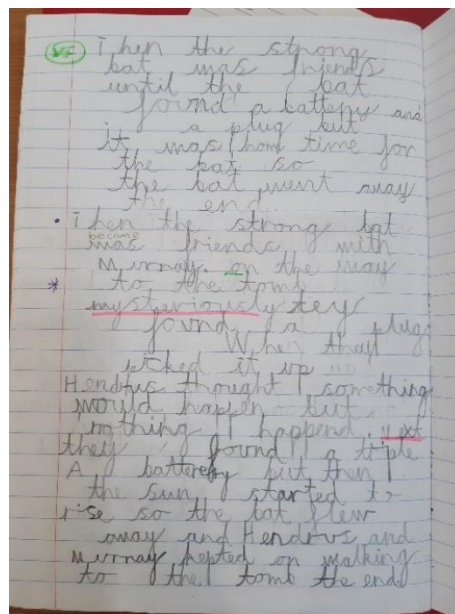 VF Then the strong
bat was friends
until the bat
found a battery and
a plug but
it was home time for
the bat so
the bat went away
the end.
• Then the strong bat
became
was friends with
Murnay. on the way
* to the tomb
mysteriously tey
found a plug
When they
picked it up
Hendrus thought something
would happen but
nothing happend. Next
they found a triple
A batterery but then
the sun started to
rise so the bat flew
away and Hendrus and
Murnay kepted on walking
to the tomb the end